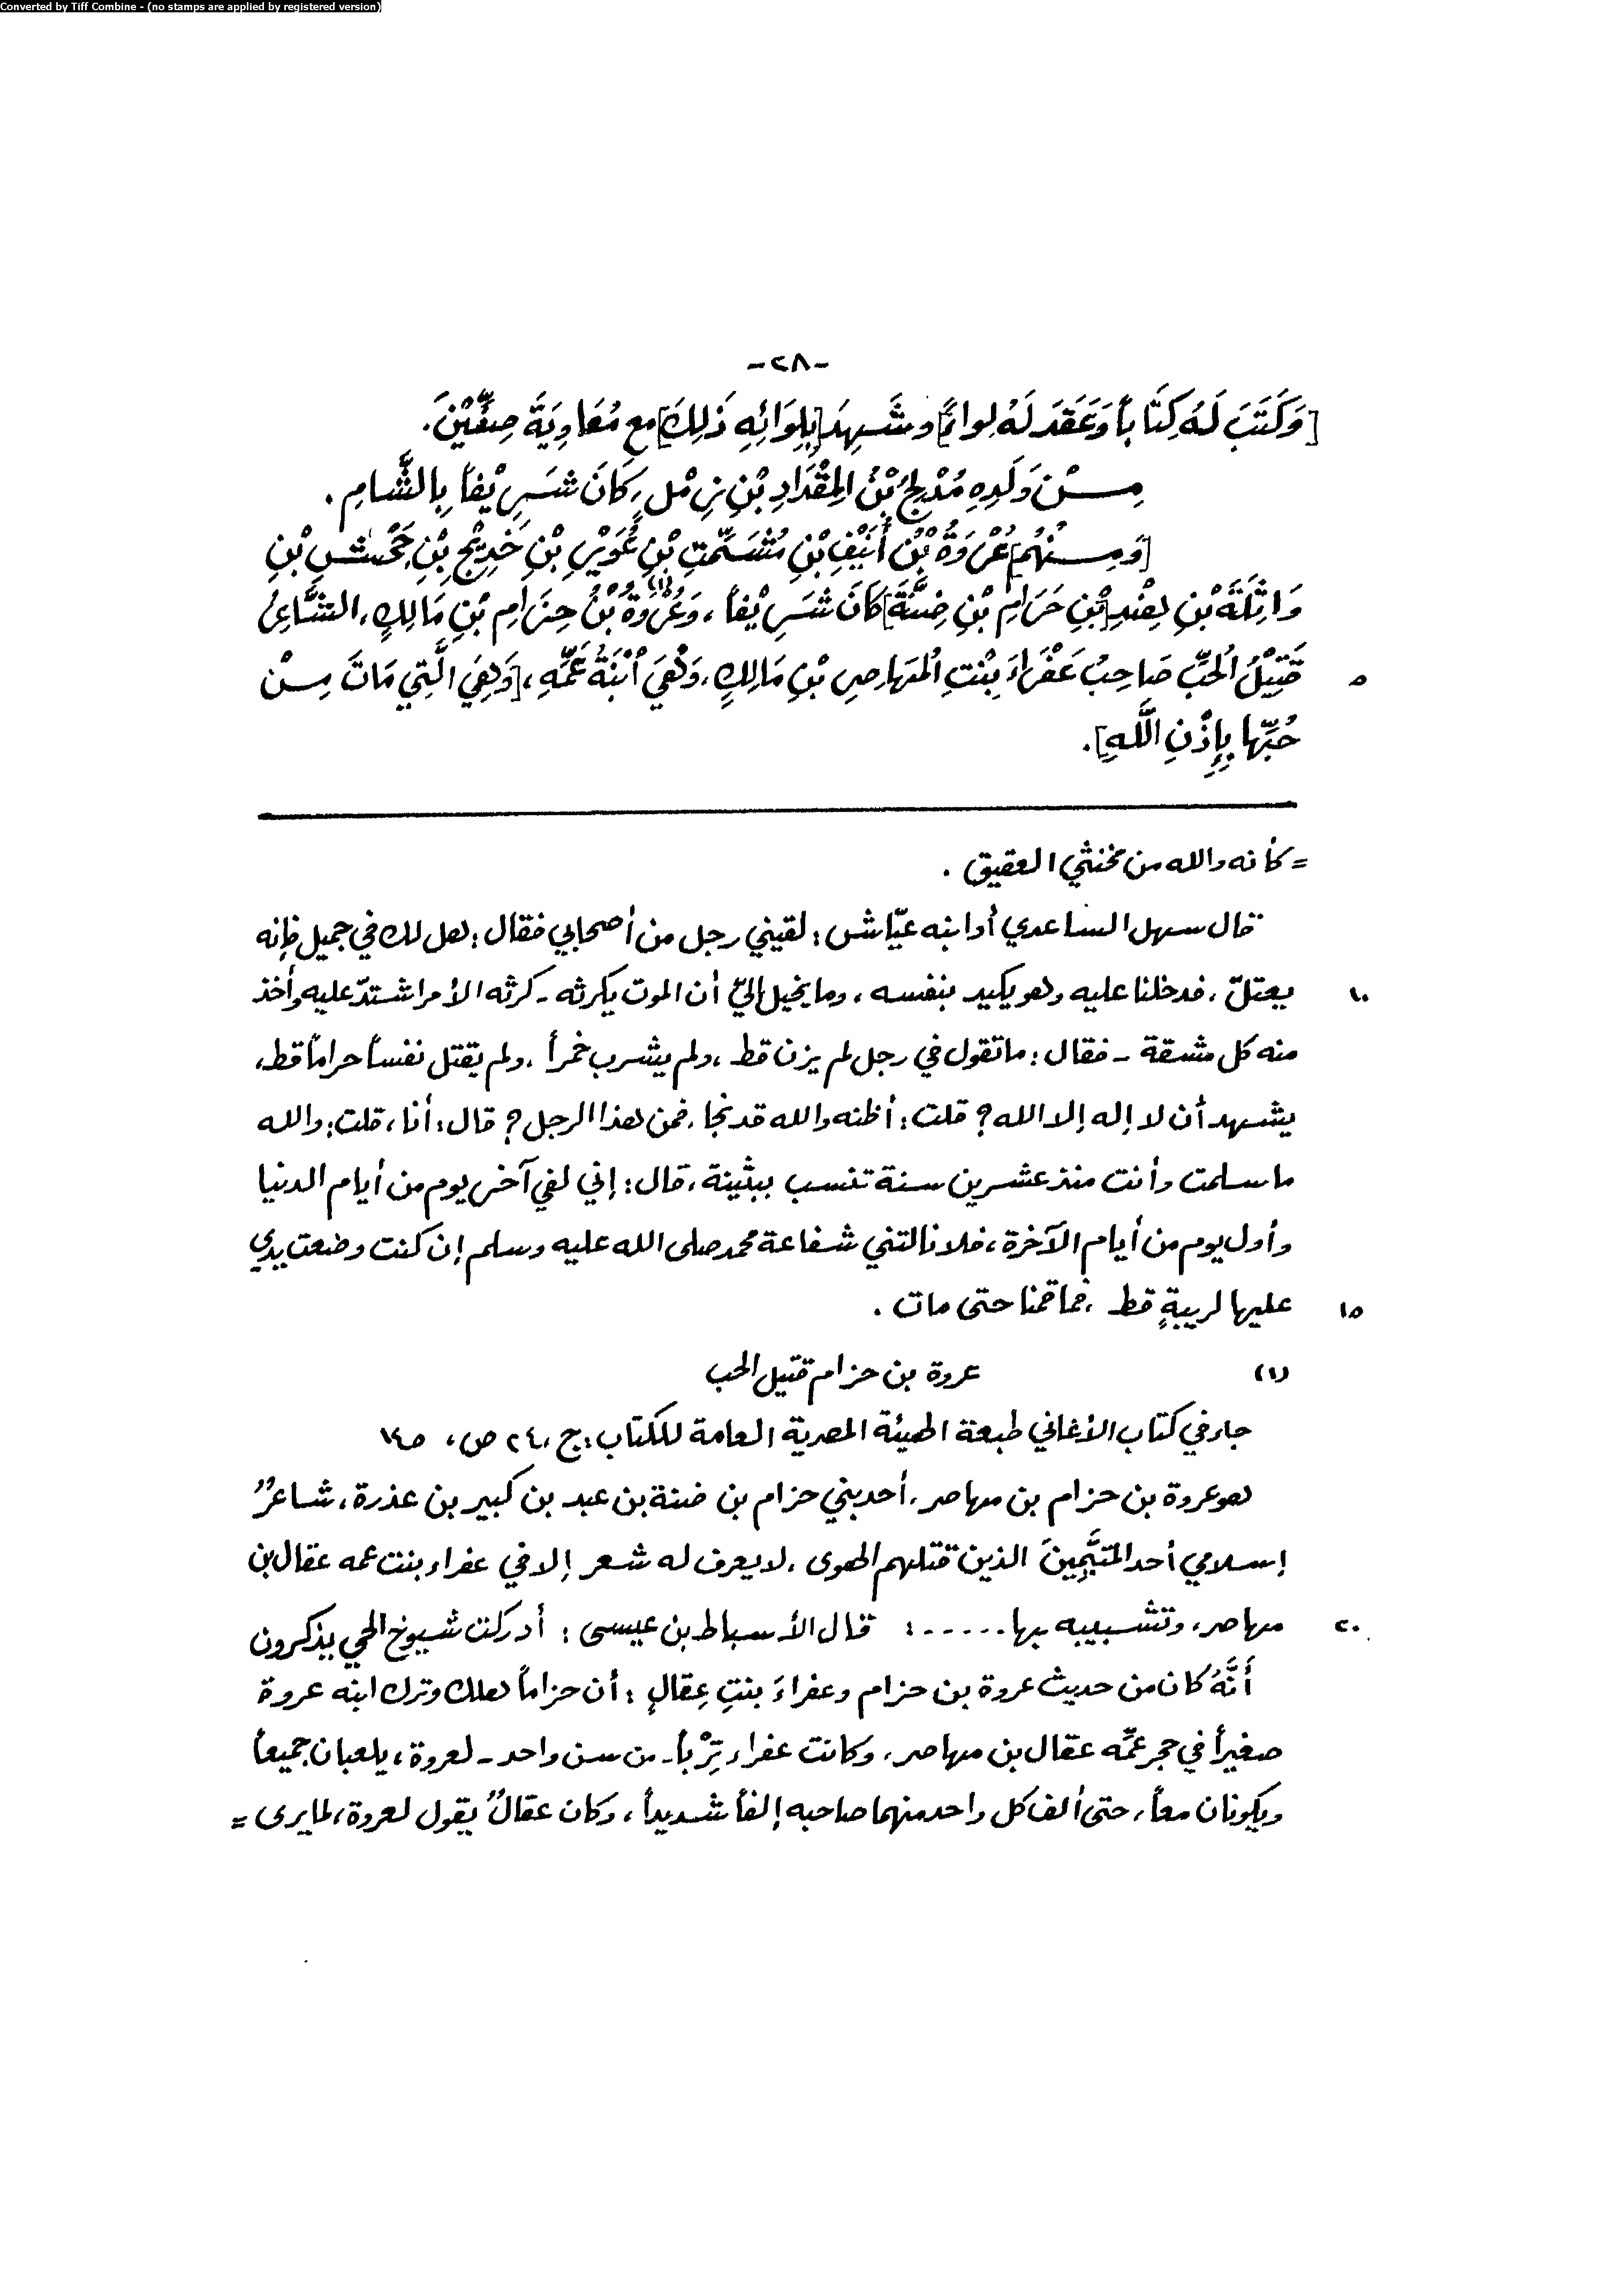 Converted by Tiff Combine - (no stamps are applied by registered version)
-٢٨-
[وَكَتَبَ لَهُ كِتَاباً وَعَقَدَ لَهُ لِواءً] وشَهِدَ [بِلِوَائِهِ ذَلِكَ] مع مُعَاوِيَةَ صِفِّيْنَ.
مِنْ وَلَدِهِ مُدْلِجُ بْنُ المِقْدَادِ بْنِ زِمْلٍ، كَانَ شَرِيْفاً بِالشَّامِ.
[وَمِنْهُم] عُرْوَةُ بْنُ أُنَيْفِ بْنِ مُشَمِّتِ بْنِ عُوَيْرِ بْنِ خَدِيْجِ بْنِ جَحْشِ بْنِ
وَاثِلَةَ بْنِ هِنْدِ [بْنِ حَرَامِ بْنِ ضِنَّةَ] كَانَ شَرِيْفاً، وَعُرْوَةُ (١) بْنُ حِزَامِ بْنِ مَالِكٍ، الشَّاعِرُ
٥ قَتِيْلُ الُحبِّ صَاحِبُ عَفْرَاءَ بِنْتِ الُمهَاصِرِ بْنِ مَالِكٍ، وَهْيَ اُبْنَةُ عَمِّهِ، [وَهِيَ الَّتِي مَاتَ مِنْ
حُبِّها بِإِذْنِ اللَّهِ].
= كأنه والله من مخنثي العقيق.
قال سهل الساعدي أو ابنه عيّاش: لقيني رجل من أصحابي فقال: هل لك في جميل فإنه
١٠ يعتلّ، فدخلنا عليه وهو يكيد بنفسه، وما يخيل إليّ أن الموت يكرثه - كرثه الأمر اشتدّ عليه وأخذ
منه كل مشقة - فقال: ما تقول في رجل لم يزن قط، ولم يشرب خمراً، ولم يقتل نفساً حراماً قط،
يشهد أن لا إله إلا الله؟ قلت: أظنه والله قد نجا، فمن هذا الرجل؟ قال: أنا، قلت: والله
ما سلمت وأنت منذ عشرين سنة تنسب ببثينة، قال: إني لفي آخر يوم من أيام الدنيا
وأول يوم من أيام الآخرة، فلا نالتني شفاعة محمد صلى الله عليه وسلم إن كنت وضعت يدي
١٥ عليها لريبةٍ قط، فما قمنا حتى مات.
(١) عروة بن حزام قتيل الحب
جاء في كتاب الأغاني طبعة الهيئة المصرية العامة للكتاب: ج، ٢٤ ص، ١٤٥
هو عروة بن حزام بن مهاصر، أحد بني حزام بن ضنة بن عبد بن كبير بن عذرة، شاعرٌ
إسلامي أحد المتيَّمِينَ الذين قتلهم الهوى، لا يعرف له شعر إلا في عفراء بنت عمه عقال بن
٢٠ مهاصر، وتشبيبه بها......: قال الأسباط بن عيسى: أدركت شيوخ الحي يذكرون
أَنَّهُ كان من حديث عروة بن حزام وعفراءَ بنتِ عِقالٍ: أن حزاماً هلك وترك ابنه عروة
صغيراً في حجر عمِّه عقال بن مهاصر، وكانت عفراء تِرْباً- من سن واحد - لعروة، يلعبان جميعاً
ويكونان معاً، حتى ألف كل واحد منهما صاحبه إلفاً شديداً، وكان عقالٌ يقول لعروة، لما يرى =